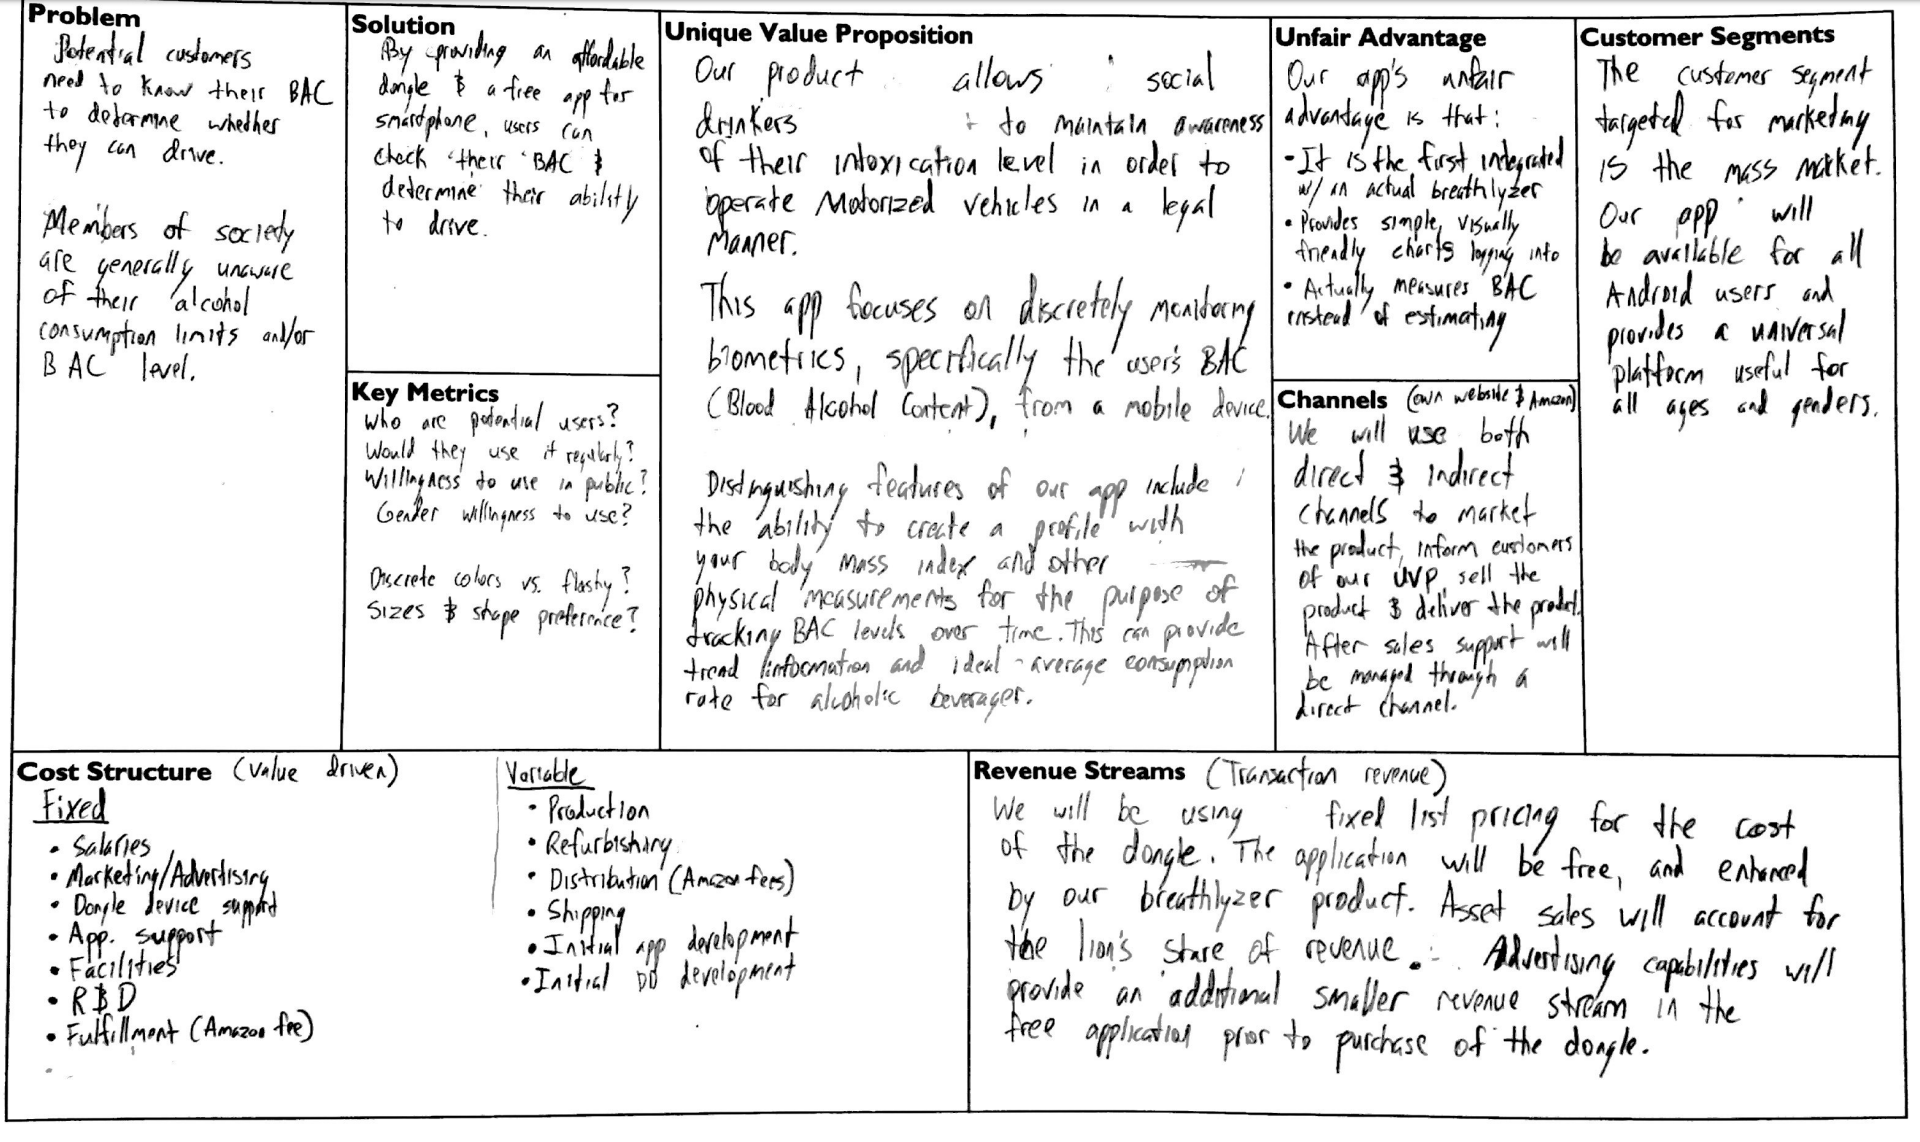 Problem
Potential customers
need to know their BAC
to determine whether
they can drive.
Members of society
are generally unaware
of their alcohol
consumption limits and/or
BAC level.
Solution
By providing an affordable
dongle & a free app for
smartphone, users can
check their BAC &
determine their ability
to drive.
Key Metrics
Who are potential users?
Would they use it regularly?
Willingness to use in public?
Gender willingness to use?
Discrete colors vs. flashy?
Sizes & shape preference?
Unique Value Proposition
Our product allows social
drinkers to maintain awareness
of their intoxication level in order to
operate Motorized vehicles in a legal
manner.
This app focuses on discretely monitoring
biometrics, specifically the user's BAC
(Blood Alcohol Content), from a mobile device.
Distinguishing features of our app include
the ability to create a profile with
your body mass index and other
physical measurements for the purpose of
tracking BAC levels over time. This can provide
trend information and ideal-average consumption
rate for alcoholic beverages.
Unfair Advantage
Our app's unfair
advantage is that:
- It is the first integrated
w/ an actual breathlyzer
• Provides simple, visually
friendly charts logging info
• Actually measures BAC
instead of estimating
Channels (own website & Amazon)
We will use both
direct & indirect
channels to market
the product, inform customers
of our UVP, sell the
product & deliver the product.
After sales support will
be managed through a
direct channel.
Customer Segments
The customer segment
targeted for marketing
is the mass market.
Our app will
be available for all
Android users and
provides a universal
platform useful for
all ages and genders.
Cost Structure (value driven)
Fixed
• Salaries
• Marketing/Advertising
• Dongle device support
• App. support
• Facilities
• R&D
• Fulfillment (Amazon fee)
Variable
• Production
• Refurbishing
• Distribution (Amazon fees)
• Shipping
• Initial app development
• Initial DD development
Revenue Streams (Transaction revenue)
We will be using fixed list pricing for the cost
of the dongle. The application will be free, and enhanced
by our breathlyzer product. Asset sales will account for
the lion's share of revenue. Advertising capabilities will
provide an additional smaller revenue stream in the
free application prior to purchase of the dongle.